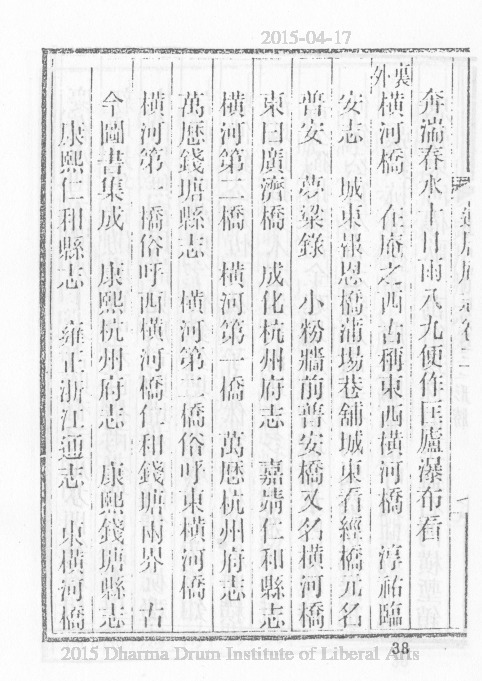 2015-04-17
奔湍春水十日雨八九便作匡廬瀑布看
裏外橫河橋　在庵之西古稱東西橫河橋　淳祐臨
安志　城東報恩橋蒲場巷舖城東看經橋元名
普安　夢粱錄　小粉牆前普安橋又名橫河橋
東曰廣濟橋　成化杭州府志　嘉靖仁和縣志
橫河第三橋　橫河第一橋　萬曆杭州府志
萬曆錢塘縣志　橫河第二橋俗呼東橫河橋
橫河第一橋俗呼西橫河橋仁和錢塘兩界　古
今圖書集成　康熙杭州府志　康熙錢塘縣志
康熙仁和縣志　雍正浙江通志　東橫河橋
38
2015 Dharma Drum Institute of Liberal Arts